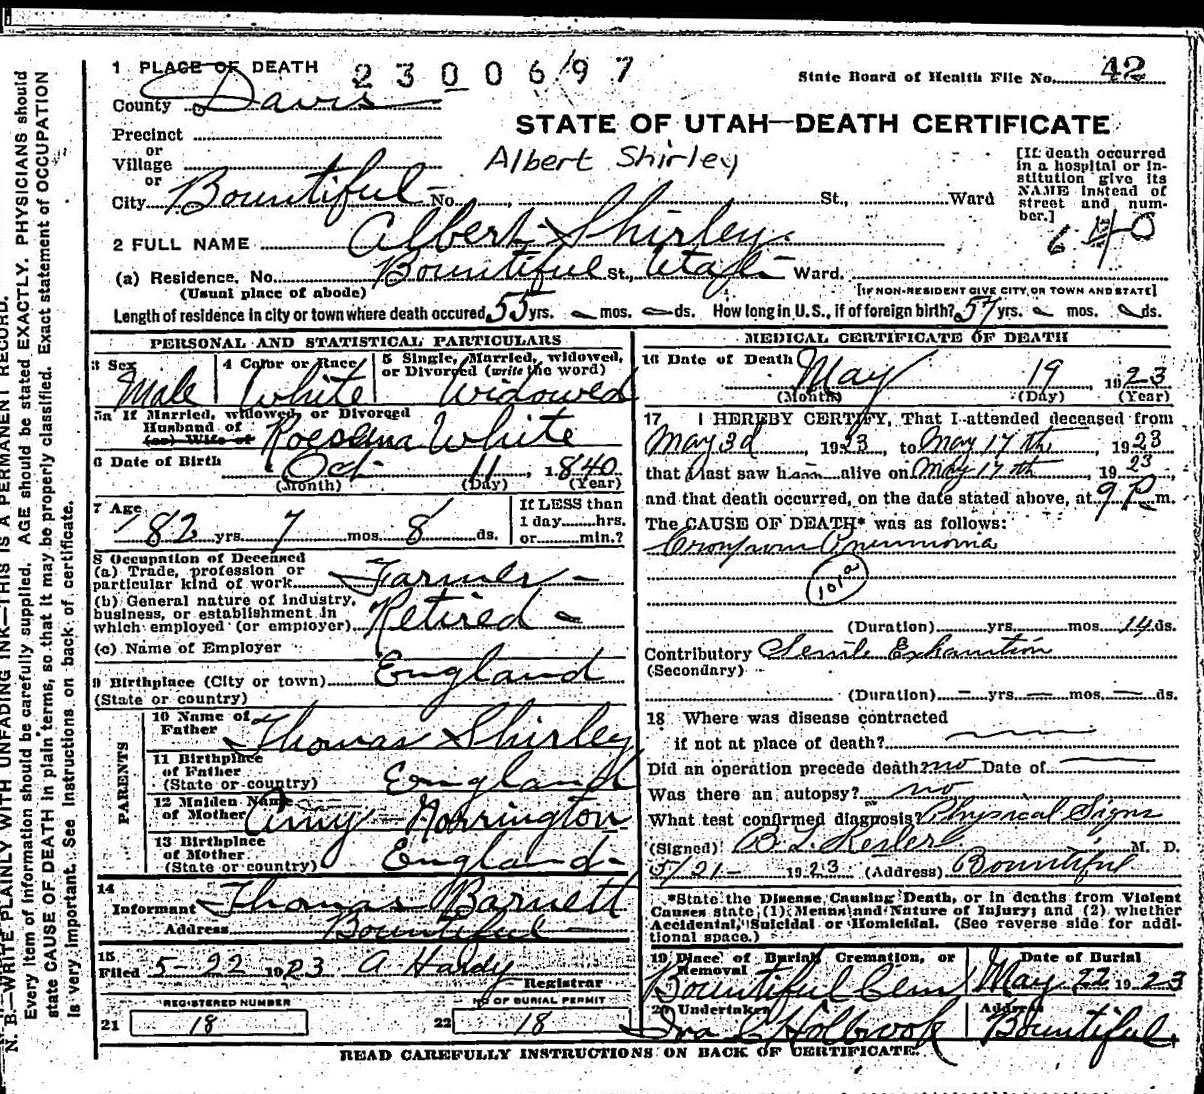 1 PLACE OF DEATH 2300697
State Board of Health File No. 42
County Davis
STATE OF UTAH—DEATH CERTIFICATE
Precinct
or
Village
Albert Shirley
or
City Bountiful No. St., Ward
[If death occurred in a hospital or institution give its NAME instead of street and number.]
640
2 FULL NAME Albert Shirley
(a) Residence, No. Bountiful St., Utah Ward.
(Usual place of abode) [IF NON-RESIDENT GIVE CITY OR TOWN AND STATE]
Length of residence in city or town where death occured 55 yrs. - mos. - ds. How long in U.S., if of foreign birth? 57 yrs. - mos. - ds.
PERSONAL AND STATISTICAL PARTICULARS
3 Sex Male
4 Color or Race White
5 Single, Married, widowed, or Divorced (write the word) Widowed
5a If Married, widowed, or Divorced
Husband of
(or) Wife of White
6 Date of Birth Oct 11, 1840
(Month) (Day) (Year)
7 Age 82 yrs. 7 mos. 8 ds.
If LESS than 1 day hrs. or min.?
8 Occupation of Deceased
(a) Trade, profession or particular kind of work Farmer -
(b) General nature of industry, business, or establishment in which employed (or employer) Retired -
(c) Name of Employer
9 Birthplace (City or town) England
(State or country)
PARENTS
10 Name of Father Thomas Shirley
11 Birthplace of Father England
(State or country)
12 Maiden Name of Mother Amy Norrington
13 Birthplace of Mother England -
(State or country)
14
Informant Thomas Barnett
Address Bountiful -
15
Filed 5-22 1923 A Hardy
Registrar
REGISTERED NUMBER NO OF BURIAL PERMIT
21 18 22 18
MEDICAL CERTIFICATE OF DEATH
16 Date of Death May 19, 1923
(Month) (Day) (Year)
17 I HEREBY CERTIFY, That I attended deceased from
May 3d 1923, to May 17th 1923
that I last saw him alive on May 17th 1923
and that death occurred, on the date stated above, at 9 P m.
The CAUSE OF DEATH* was as follows:
Pneumonia
101a
(Duration) yrs. mos. 14 ds.
Contributory Senile Exhaustion
(Secondary)
(Duration) - yrs. - mos. - ds.
18 Where was disease contracted
if not at place of death?
Did an operation precede death no Date of
Was there an autopsy? no
What test confirmed diagnosis? Physical Signs
(Signed) M. D.
5/21- 1923 (Address) Bountiful
*State the Disease Causing Death, or in deaths from Violent
Causes state (1) Means and Nature of Injury; and (2) whether
Accidental, Suicidal or Homicidal. (See reverse side for addi-
tional space.)
19 Place of Burial, Cremation, or Removal
Bountiful Cem
Date of Burial
May 22 1923
20 Undertaker Holbrook
Address Bountiful
READ CAREFULLY INSTRUCTIONS ON BACK OF CERTIFICATE.
N. B.—WRITE PLAINLY WITH UNFADING INK—THIS IS A PERMANENT RECORD.
Every item of information should be carefully supplied. AGE should be stated EXACTLY. PHYSICIANS should
state CAUSE OF DEATH in plain terms, so that it may be properly classified. Exact statement of OCCUPATION
is very important. See Instructions on back of certificate.